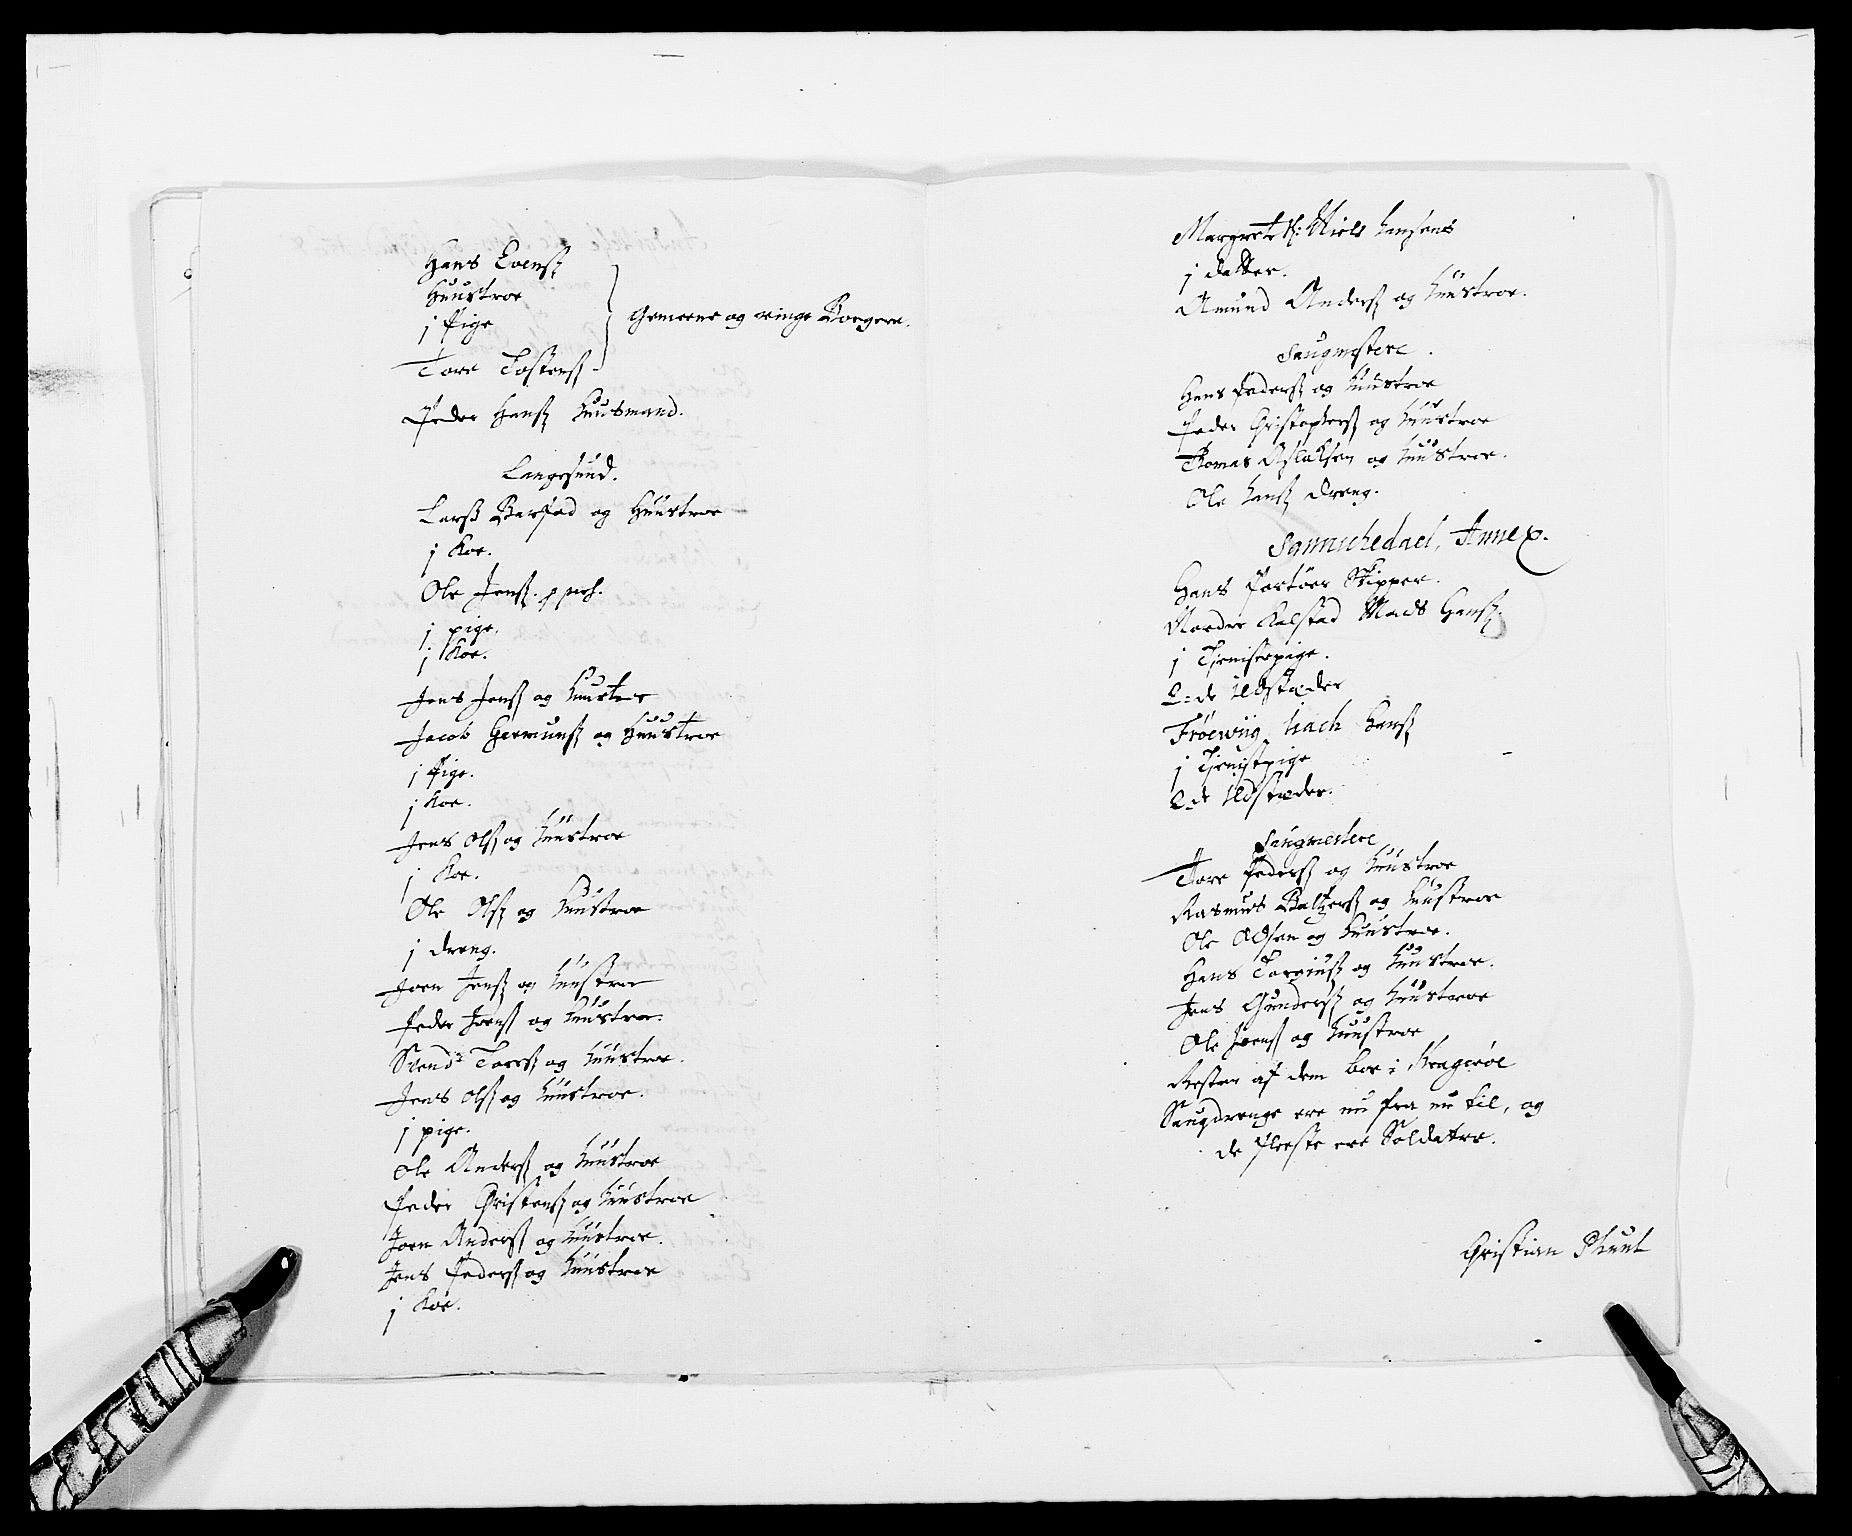 Hans Evenß
Huustroe
j Pige
Tore Tostenß
Gemeene og ringe Borgere.
Peder Hanß Huusmand.
Langesund.
Larß Barfod og Huustroe
j Koe.
Ole Jenß.
j pige.
j Koe.
Jens Jenß og huustroe
Jacob Germunß og Huustroe
j Pige.
j Koe.
Jens Olß og huustroe
j Koe.
Ole Olß og huustroe
j dreng.
Joen Jenß og huustroe
Peder Joenß og huustroe.
Svend Torß og huustroe.
Jens Olß og huustroe.
j pige.
Ole Anderß og huustroe
Peder Christenß og huustroe
Joen Anderß og huustroe.
Jens Pederß og huustroe
j Koe.
Margrete Niels hansens
j datter.
Amund Anderß og huustroe.
Saugmestere.
Hans Pederß og huustroe
Peder Christopherß og huustroe
Thomas Aslaksen og huustroe.
Ole hanß dreng.
Sannichedael, Annex.
Hans Portöer Skipper.
Nordre Kalstad Mads Hanß.
j Tjenistepige.
2de Ildstæder
Frøewiig, Hanß
j Tjenistpige
2de Ildstæder.
Saugmestere
Tore Pederß og huustroe
Rasmus Baltzerß og huustroe
Ole Olsen og huustroe.
Hans Torgiusß og huustroe.
Jens Gunderß og huustroe
Ole Joenß og huustroe
Resten af dem boe i Kragerøe
Saugdrenge ere nu fra nu til, og
de fleeste ere Soldatre.
Christian